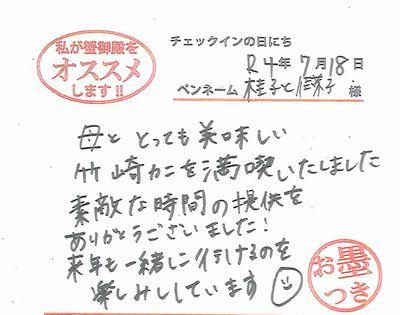 私が蟹御殿を
オススメ
します!!
チェックインの日にち
R4年 7月 18日
ペンネーム 桂子と 様
母と とっても美味しい
竹崎カニを満喫いたしました
素敵な時間の提供を
ありがとうございました!
来年も一緒に行けるのを
楽しみしています
お墨
つき